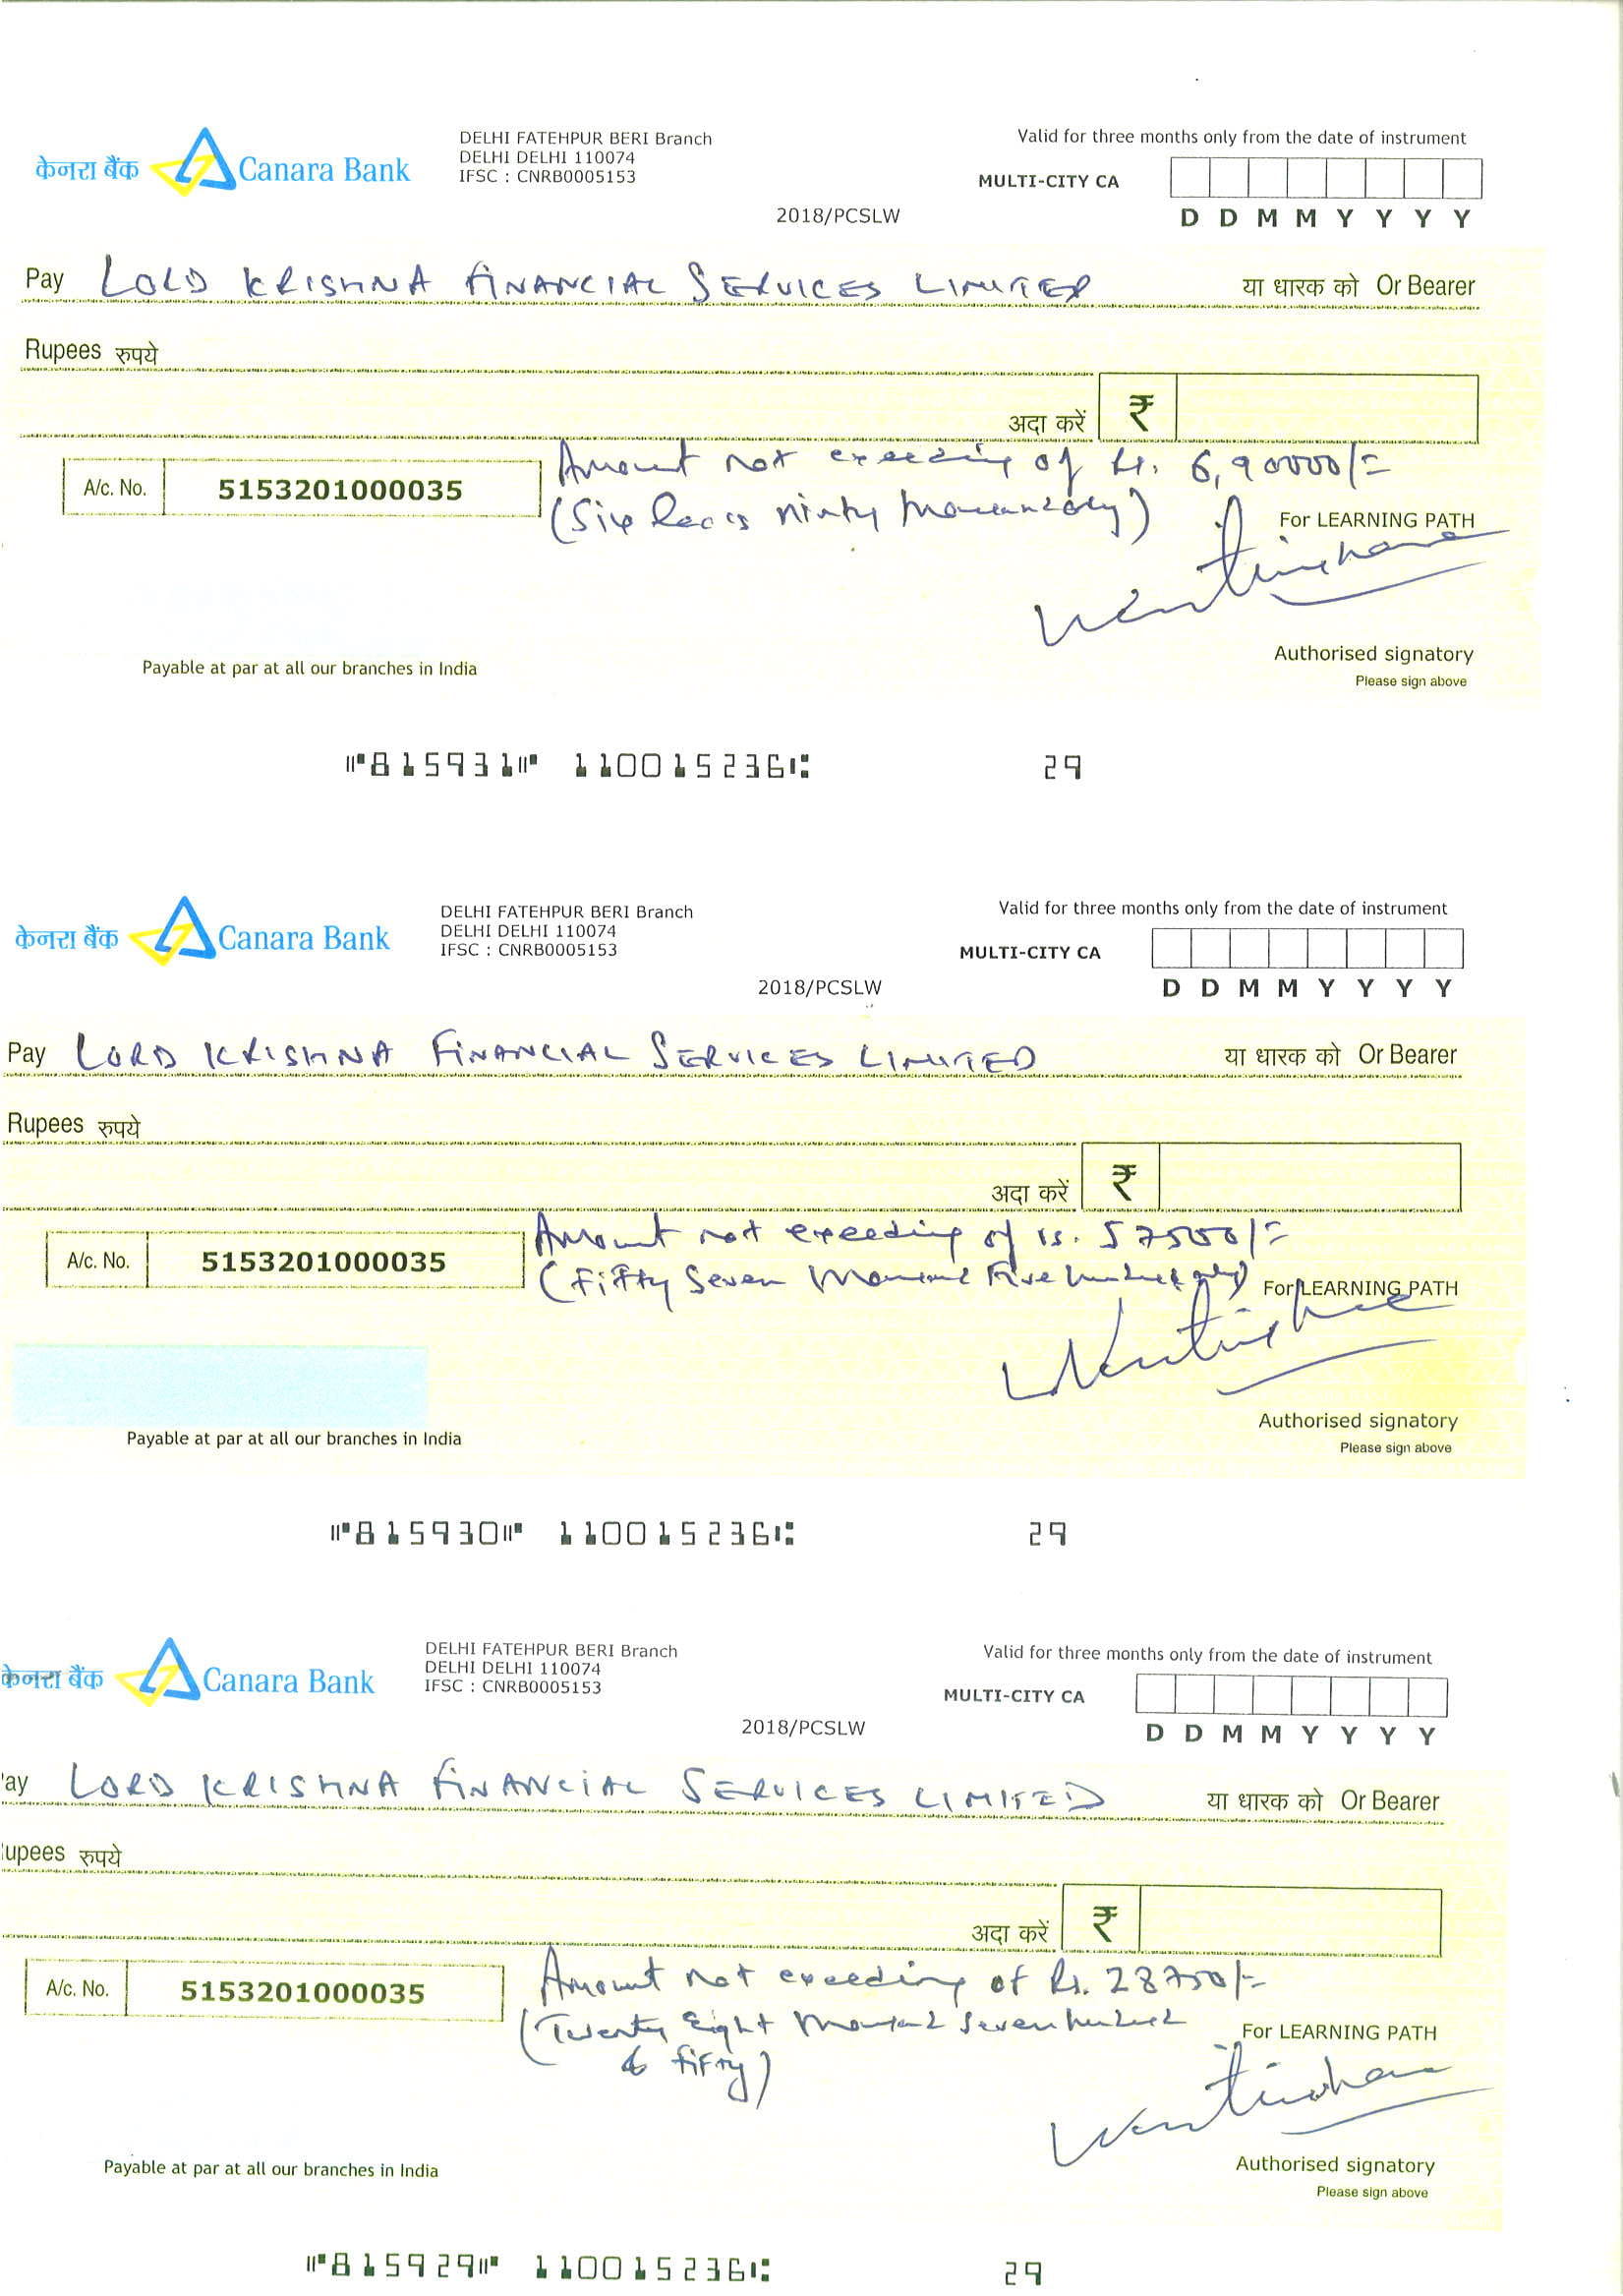 केनरा बैंक Canara Bank
DELHI FATEHPUR BERI Branch
DELHI DELHI 110074
IFSC : CNRB0005153
2018/PCSLW
Valid for three months only from the date of instrument
MULTI-CITY CA
D D M M Y Y Y Y
Pay LORD KRISHNA FINANCIAL SERVICES LIMITED या धारक को Or Bearer
Rupees रुपये
अदा करें ₹
A/c. No. 5153201000035
Amount not exceeding of Rs. 6,90000/=
(Six Lacs ninty thousand only)
For LEARNING PATH
Authorised signatory
Please sign above
Payable at par at all our branches in India
⑈815931⑈ 110015236⑆ 29
केनरा बैंक Canara Bank
DELHI FATEHPUR BERI Branch
DELHI DELHI 110074
IFSC : CNRB0005153
2018/PCSLW
Valid for three months only from the date of instrument
MULTI-CITY CA
D D M M Y Y Y Y
Pay LORD KRISHNA FINANCIAL SERVICES LIMITED या धारक को Or Bearer
Rupees रुपये
अदा करें ₹
A/c. No. 5153201000035
Amount not exeeding of Rs. 57500/=
(Fifty Seven thousand Five hundred only)
For LEARNING PATH
Authorised signatory
Please sign above
Payable at par at all our branches in India
⑈815930⑈ 110015236⑆ 29
केनरा बैंक Canara Bank
DELHI FATEHPUR BERI Branch
DELHI DELHI 110074
IFSC : CNRB0005153
2018/PCSLW
Valid for three months only from the date of instrument
MULTI-CITY CA
D D M M Y Y Y Y
'ay LORD KRISHNA FINANCIAL SERVICES LIMITED या धारक को Or Bearer
upees रुपये
अदा करें ₹
A/c. No. 5153201000035
Amount not exceeding of Rs. 28750/-
(Twenty Eight thousand Seven hundred
& fifty)
For LEARNING PATH
Authorised signatory
Please sign above
Payable at par at all our branches in India
⑈815929⑈ 110015236⑆ 29